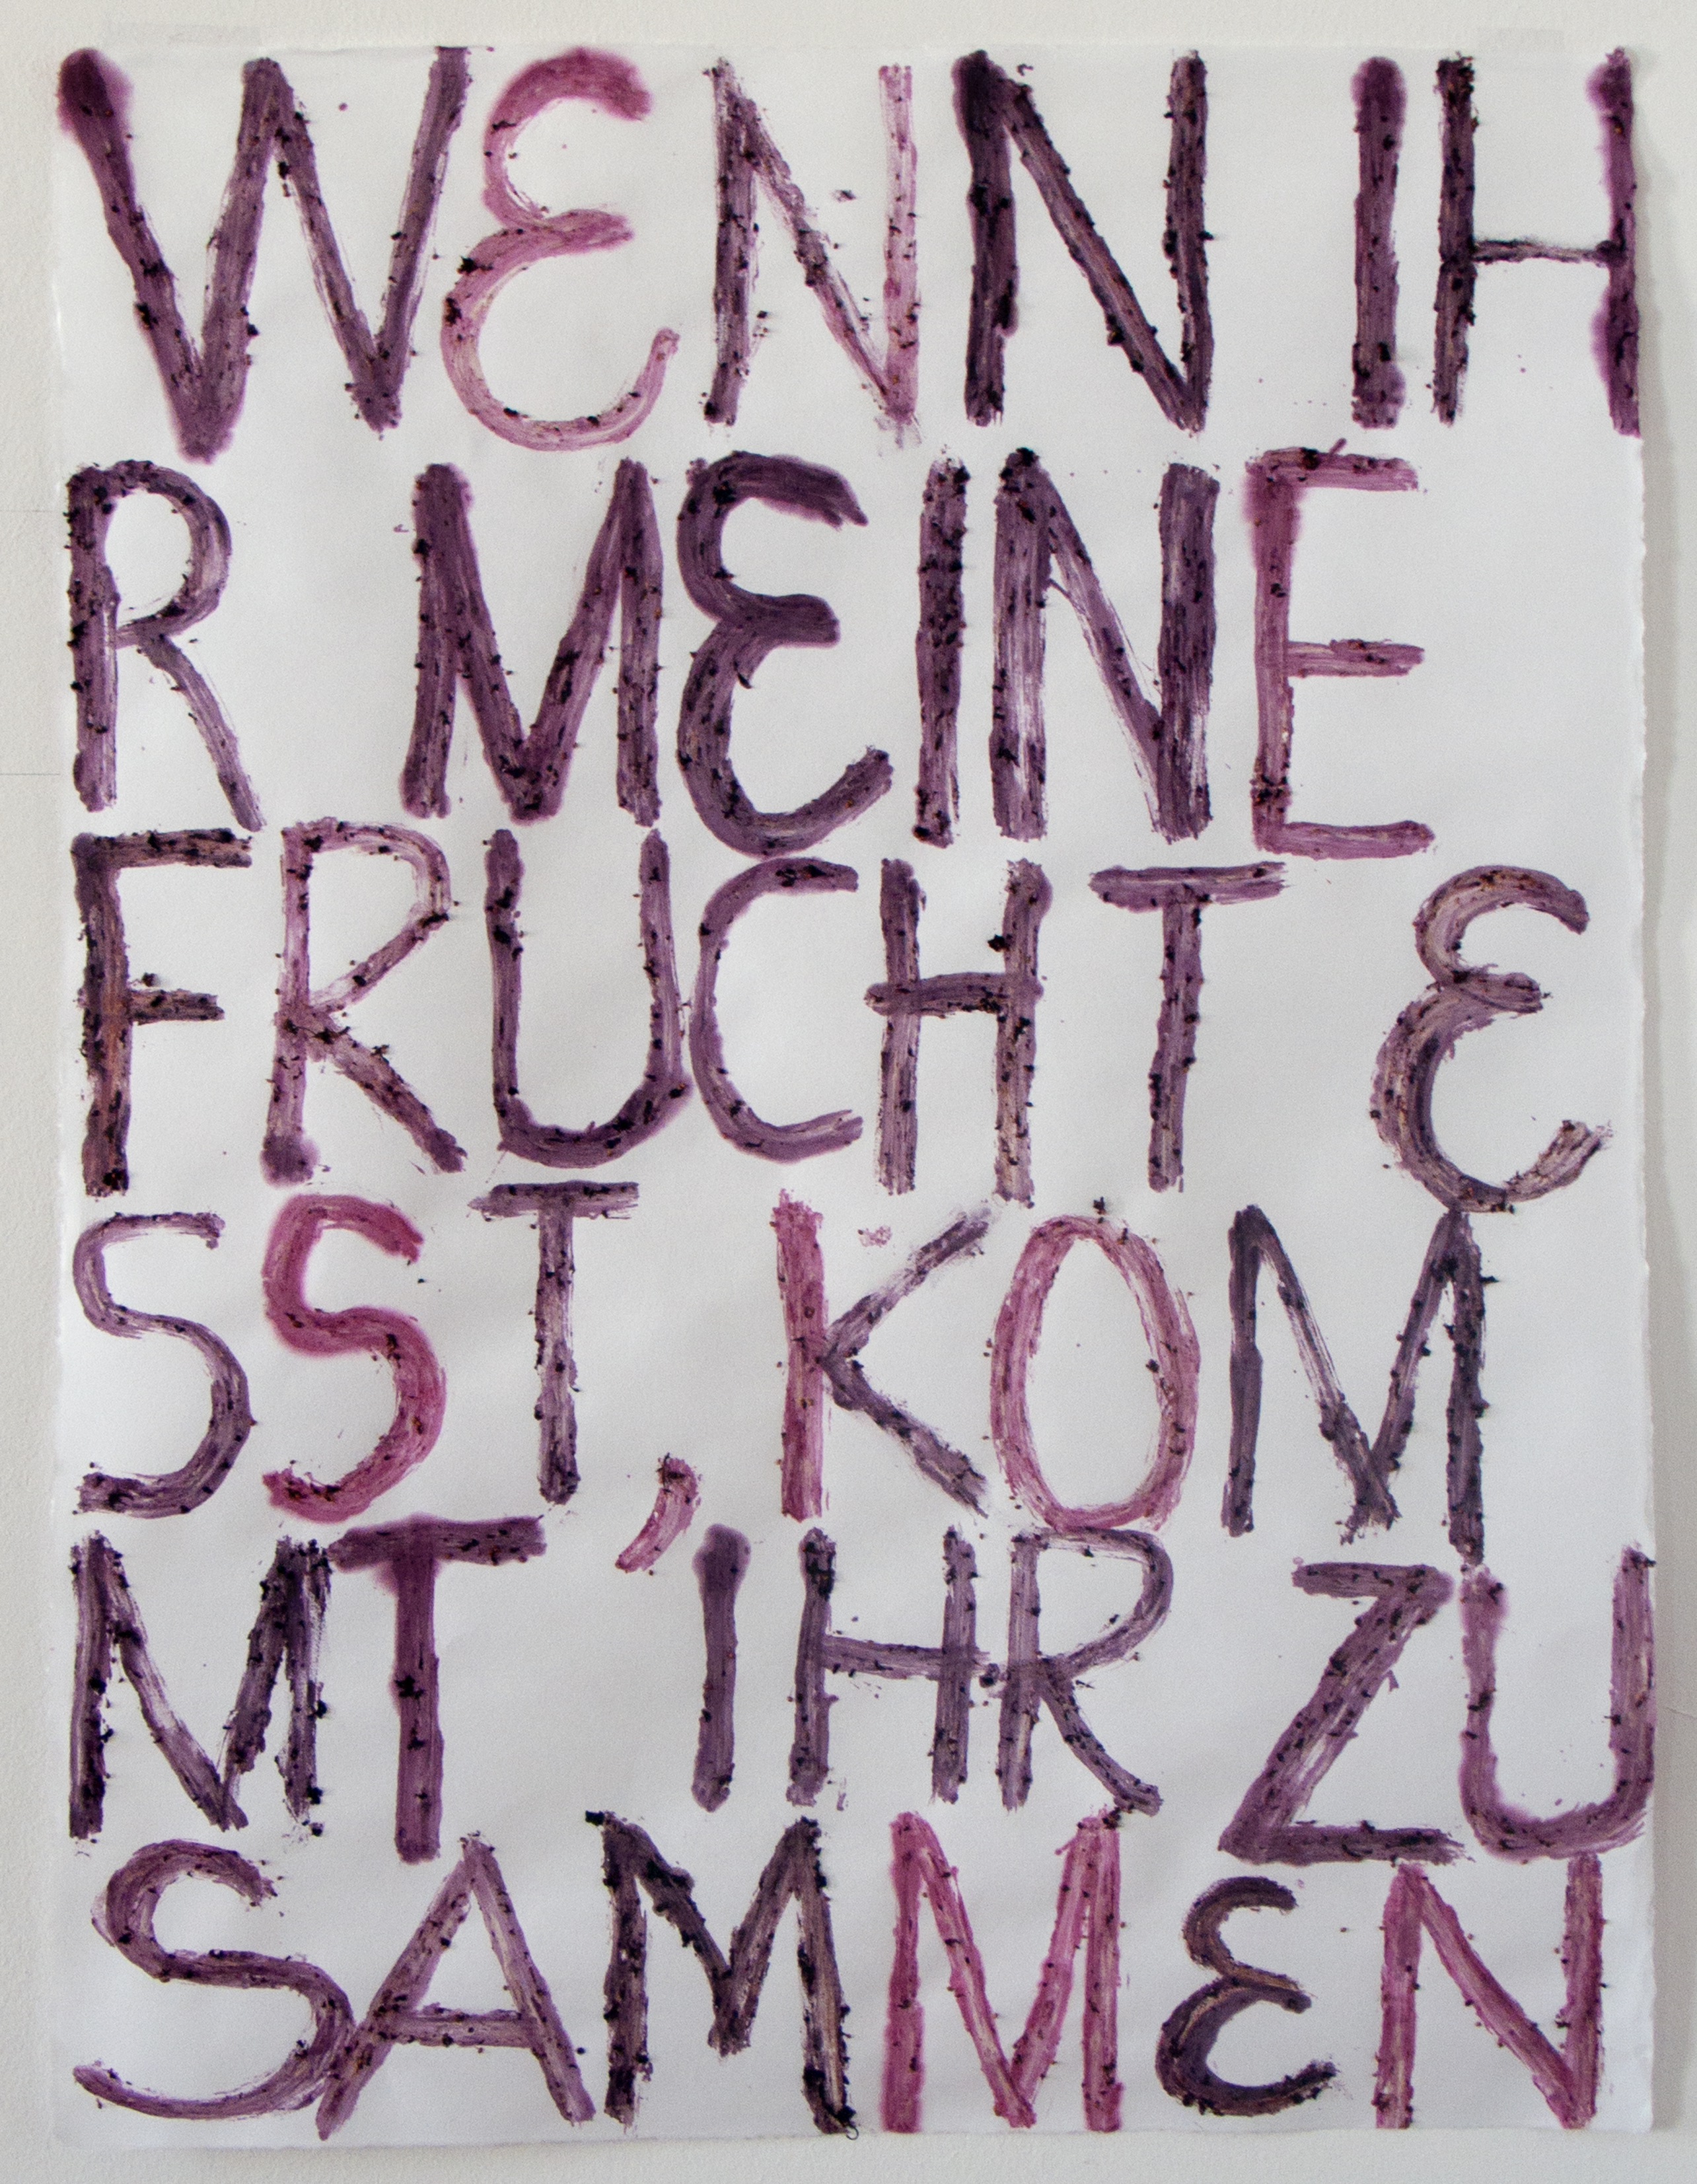 WENN IH
R MEINE
FRUCHT E
SST, KOM
MT IHR ZU
SAMMEN